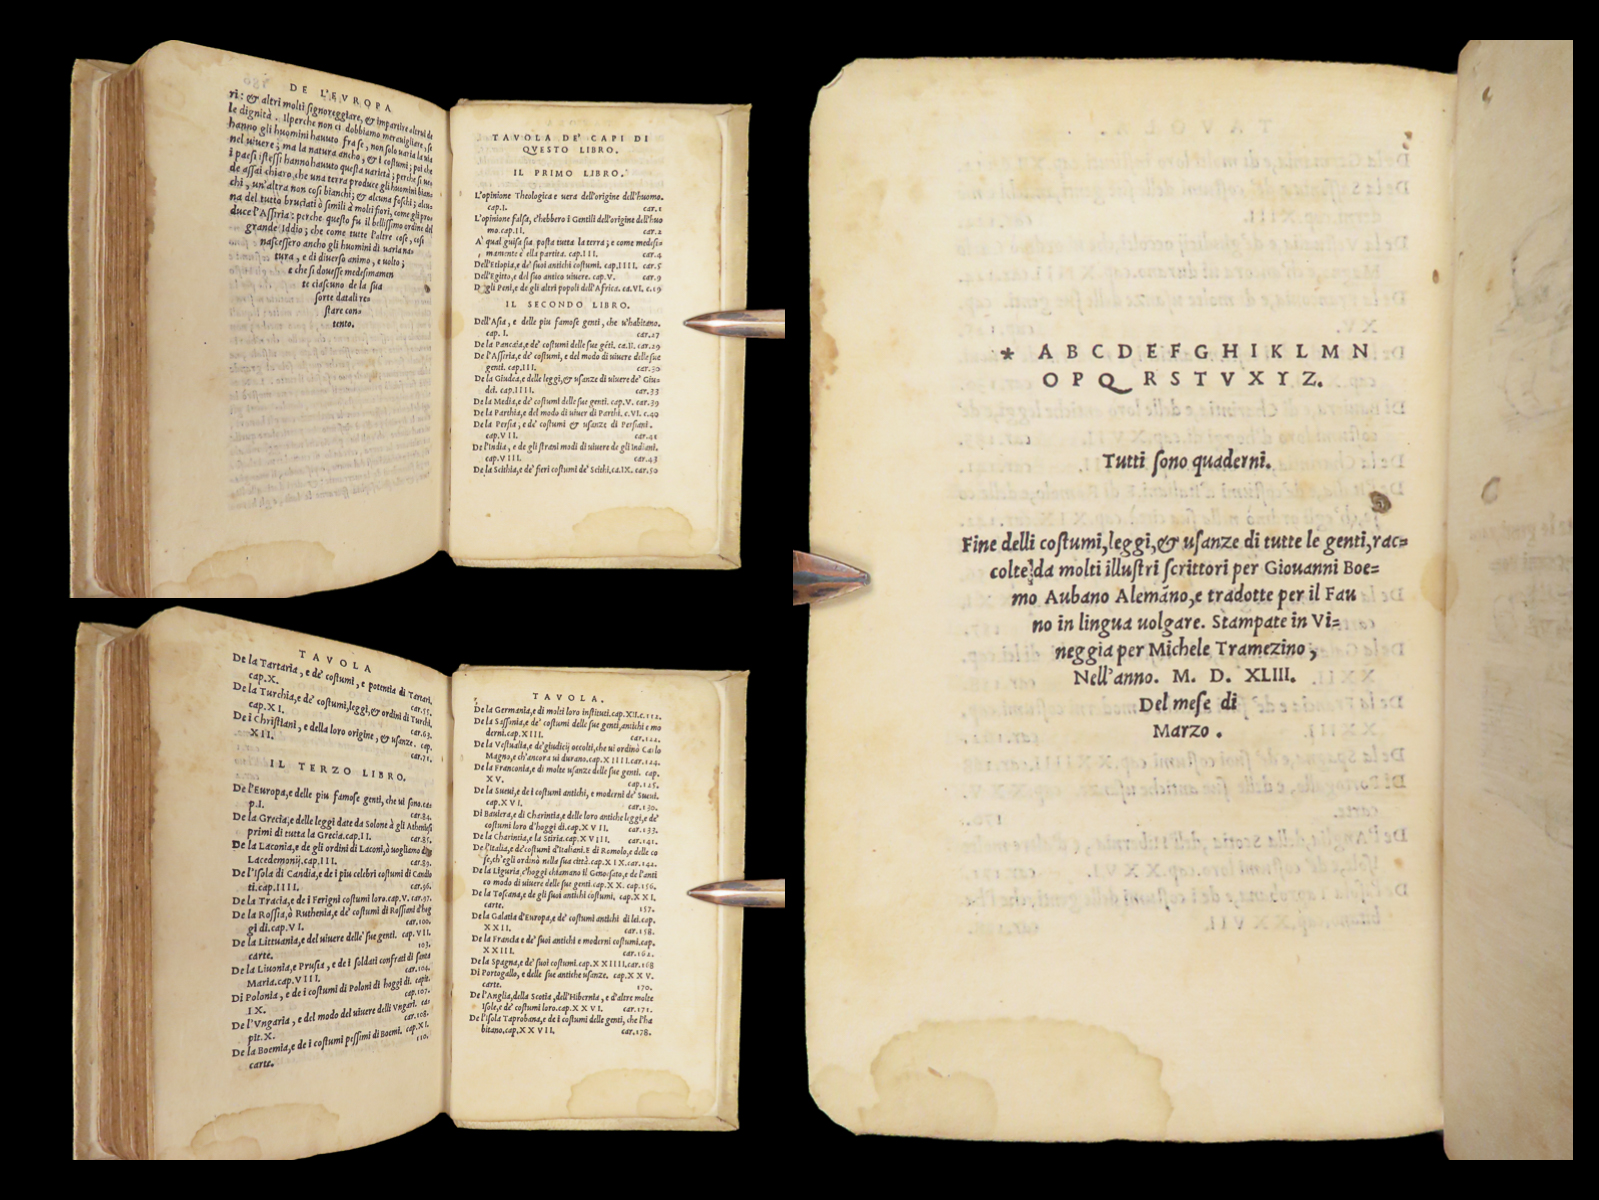 DE L'EVROPA
ri: & altri molti signoreggiare, & impartire altrui de
le dignità. Ilperche non ci dobbiamo merauigliare, se
hanno gli huomini hauuto fra se, non solo uaria la uia
nel uiuere; ma la natura ancho, & i costumi; poi che
i paesi istessi hanno hauuto questa uarietà; perche si ue
de assai chiaro, che una terra produce gli huomini bian
chi, un'altra non cosi bianchi; & alcuna foschi; alcu
na del tutto bruciati ò simili à molti fiori, come gli pro
duce l'Assiria: perche questo fu il bellissimo ordine del
grande Iddio; che come tutte l'altre cose, cosi
nascessero ancho gli huomini di uaria na-
tura, e di diuerso animo, e uolto;
e che si douesse medesimamen
te ciascuno de la sua
sorte datali re-
stare con-
tento.
TAVOLA DE' CAPI DI
QVESTO LIBRO.
IL PRIMO LIBRO.
L'opinione Theologica e uera dell'origine dell'huomo.
cap.I. car.1
L'opinione falsa, c'hebbero i Gentili dell'origine dell'huo
mo.cap.II. car.2
A' qual guisa sia posta tutta la terra; e come medesi-
mamente è ella partita. cap.III. car.4
Dell'Etiopia, e de' suoi antichi costumi. cap.IIII. car.5
Dell'Egitto, e del suo antico uiuere. cap.V. car.9
D gli Peni, e de gli altri popoli dell'Africa. ca.VI. c.19
IL SECONDO LIBRO.
Dell'Asia, e delle piu famose genti, che u'habitano.
cap. I. car.27
De la Pancaia, e de' costumi delle sue gēti. ca.II. car.29
De l'Assiria, e de' costumi, e del modo di uiuere delle sue
genti. cap.III. car.30
De la Giudea, e delle leggi, & usanze di uiuere de' Giu-
dei. cap.IIII. car.33
De la Media, e de' costumi delle sue genti. cap.V. car.39
De la Parthia, e del modo di uiuer di Parthi. c.VI. c.40
De la Persia, e de' costumi & usanze di Persiani.
cap.VII. car.41
De l'India, e de gli strani modi di uiuere de gli Indiani.
cap.VIII. car.43
De la Scithia, e de' fieri costumi de' Scithi. ca.IX. car.50
TAVOLA
De la Tartaria, e de' costumi, e potentia di Tartari.
cap.X. car.55.
De la Turchia, e de' costumi, leggi, & ordini di Turchi.
cap.XI. car.63.
De i Christiani, e della loro origine, & usanze. cap.
XII. car.71.
IL TERZO LIBRO.
De l'Europa, e delle piu famose genti, che ui sono.ca
p.I. car.84.
De la Grecia, e delle leggi date da Solone à gli Atheniesi
primi di tutta la Grecia.cap.II. car.85.
De la Laconia, e de gli ordini di Laconi, ò uogliamo dir
Lacedemonij.cap.III. car.89.
De l'isola di Candia, e de i piu celebri costumi di Candio
ti.cap.IIII. car.96.
De la Tracia, e de i Ferigni costumi loro.cap.V. car.97.
De la Rossia, ò Ruthenia, e de' costumi di Rossiani d'hog
gi di.cap.VI. car.100.
De la Littuania, e del uiuere delle sue genti. cap. VII.
carte. 103.
De la Liuonia, e Prusia, e de i soldati confrati di santa
Maria.cap.VIII. car.104.
Di Polonia, e de i costumi di Poloni di hoggi di. capit.
IX. cap.107.
De l'Vngaria, e del modo del uiuere delli Vngari. ca
pit.X. car.108.
De la Boemia, e de i costumi pessimi di Boemi. cap.XI.
carte. 110.
TAVOLA.
De la Germania, e di molti loro instituti.cap.XII.c.112.
De la Sassonia, e de' costumi delle sue genti, antichi e mo
derni.cap.XIII. car.122.
De la Vestualia, e de' giudicij occolti, che ui ordinò Carlo
Magno, e ch'ancora ui durano.cap.XIIII.car.124.
De la Franconia, e di molte usanze delle sue genti. cap.
XV. car.125.
De la Sueui, e de i costumi antichi, e moderni de' Sueui.
cap.XVI. car.130.
Di Bauiera, e di Charintia, e delle loro antiche leggi, e de'
costumi loro d'hoggi di.cap.XVII. car.133.
De la Charintia, e la Stiria.cap.XVIII. car.141.
De l'Italia, e de' costumi d'Italiani. E di Romolo, e delle co
se, ch'egli ordinò nella sua città.cap.XIX.car.142.
De la Liguria, c'hoggi chiamano il Genoesato, e de l'anti
co modo di uiuere delle sue genti.cap.XX. cap.156.
De la Toscana, e de gli suoi antichi costumi. cap.XXI.
carte. 157.
De la Galatia d'Europa, e de' costumi antichi di lei.cap.
XXII. car.158.
De la Francia e de' suoi antichi e moderni costumi.cap.
XXIII. car.162.
De la Spagna, e de' suoi costumi.cap.XXIIII.car.168
Di Portogallo, e delle sue antiche usanze. cap.XXV.
carte. 170.
De l'Anglia, della Scotia, dell'Hibernia, e d'altre molte
Isole, e de' costumi loro.cap.XXVI. car.171.
De l'isola Taprobana, e de i costumi delle genti, che l'ha
bitano.cap.XXVII. car.178.
* A B C D E F G H I K L M N
O P Q R S T V X Y Z.
Tutti sono quaderni.
Fine delli costumi, leggi, & usanze di tutte le genti, rac=
colte da molti illustri scrittori per Giouanni Boe=
mo Aubano Alemāno, e tradotte per il Fau
no in lingua uolgare. Stampate in Vi=
neggia per Michele Tramezino,
Nell'anno. M. D. XLIII.
Del mese di
Marzo.